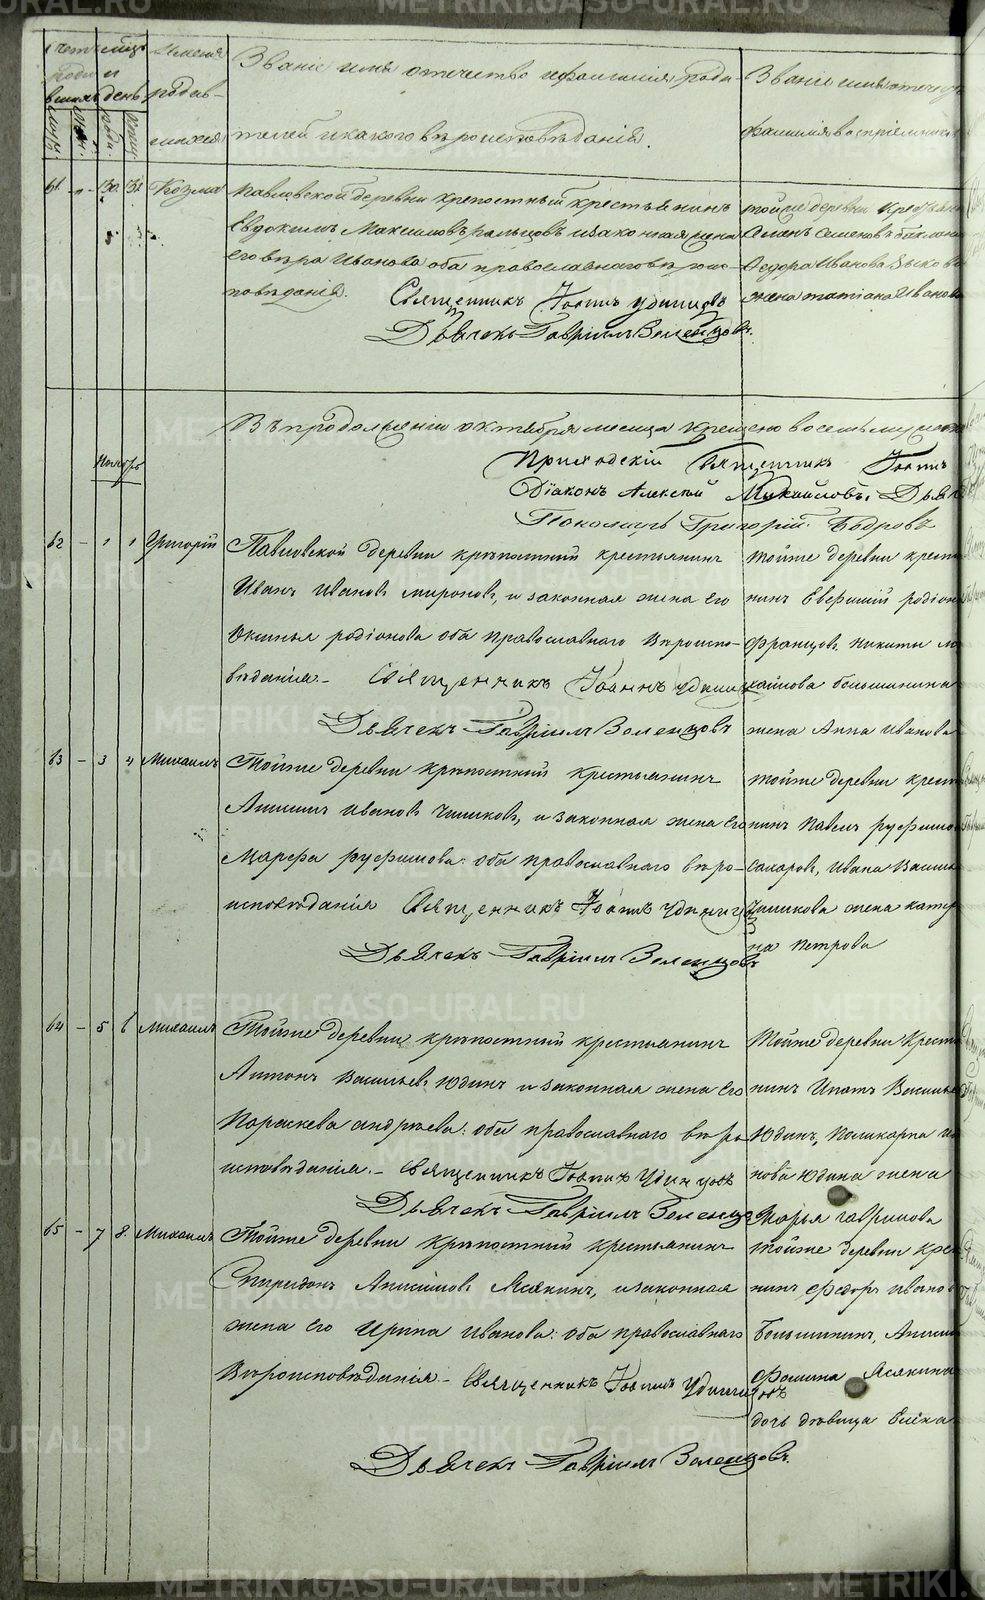 METRIKI.GASO-URAL.RU
Счетъ
родившихся
месяцъ и день
рожд.
крещ.
Имена родив-
шихся
Званіе имя отечество и фамилія роди-
телей и какого вѣроисповѣданія.
Званіе имя отечество
фамилія воспріемниковъ
61. - 30. 31. Козма
Павловской деревни крепостный крестьянинъ
Евдокимъ Максимовъ и законная жена
его вѣра Иванова оба православнаго вѣроис-
повѣданія.
Священникъ Іоаннъ Удинцовъ
Дьячекъ Гавріилъ Зеленцовъ.
тойже деревни
Семеновъ
Федора Иванова
жена татіана Иванова
Въ продолженіи октября месяца крещено восемь
Приходскій Священникъ Іоаннъ
Діаконъ Алексѣй Михайловъ. Дьяч
Пономарь Григорій
Ноябрь
62 - 1 1 Григорій
Павловской деревни крѣпостный крестьянинъ
Иванъ Ивановъ Мироновъ, и законная жена его
Оксинья родіонова оба православнаго вѣроиспо-
вѣданія. - Священникъ Іоаннъ Удинц
Дьячекъ Гавріилъ Зеленцовъ
тойже деревни крест
нинъ Евфимій родіон
Францовъ. Никиты м
хайлова большинина
жена Анна иванова
63 - 3 4 Михаилъ
Тойже деревни крѣпостный крестьянинъ
Анисимъ Ивановъ Чишковъ, и законная жена его
Марфа руфимова: оба православнаго вѣро-
исповѣданія Священникъ Іоаннъ Удинц
Дьячекъ Гавріилъ Зеленцовъ
тойже деревни крест
нинъ Павелъ руфимо
сахаровъ, Ивана Васил
Чишкова жена катер
на Петрова
64 - 5 6 Михаилъ
Тойже деревни крѣпостный крестьянинъ
Антонъ Васильевъ Юдинъ и законная жена его
Параскева андреева: оба православнаго вѣро
исповѣданія. - Священникъ Іоаннъ Удинцовъ
Дьячекъ Гавріилъ Зеленцо
Тойже деревни Крест
нинъ Ипатъ Василье
Юдинъ, Поликарпа
нова Юдина жена
Марья гаврилова
65 - 7 8. Михаилъ
Тойже деревни крѣпостный крестьянинъ
Спиридонъ Анисимовъ Ясякинъ, и законная
жена его Ирина Иванова: оба православнаго
Вѣроисповѣданія. - Священникъ Іоаннъ Удинцовъ
Дьячекъ Гавріилъ Зеленцовъ.
тойже деревни крес
нинъ Федоръ ивано
Большининъ, Аниси
Фомина Ясякина
дочь дѣвица Елена